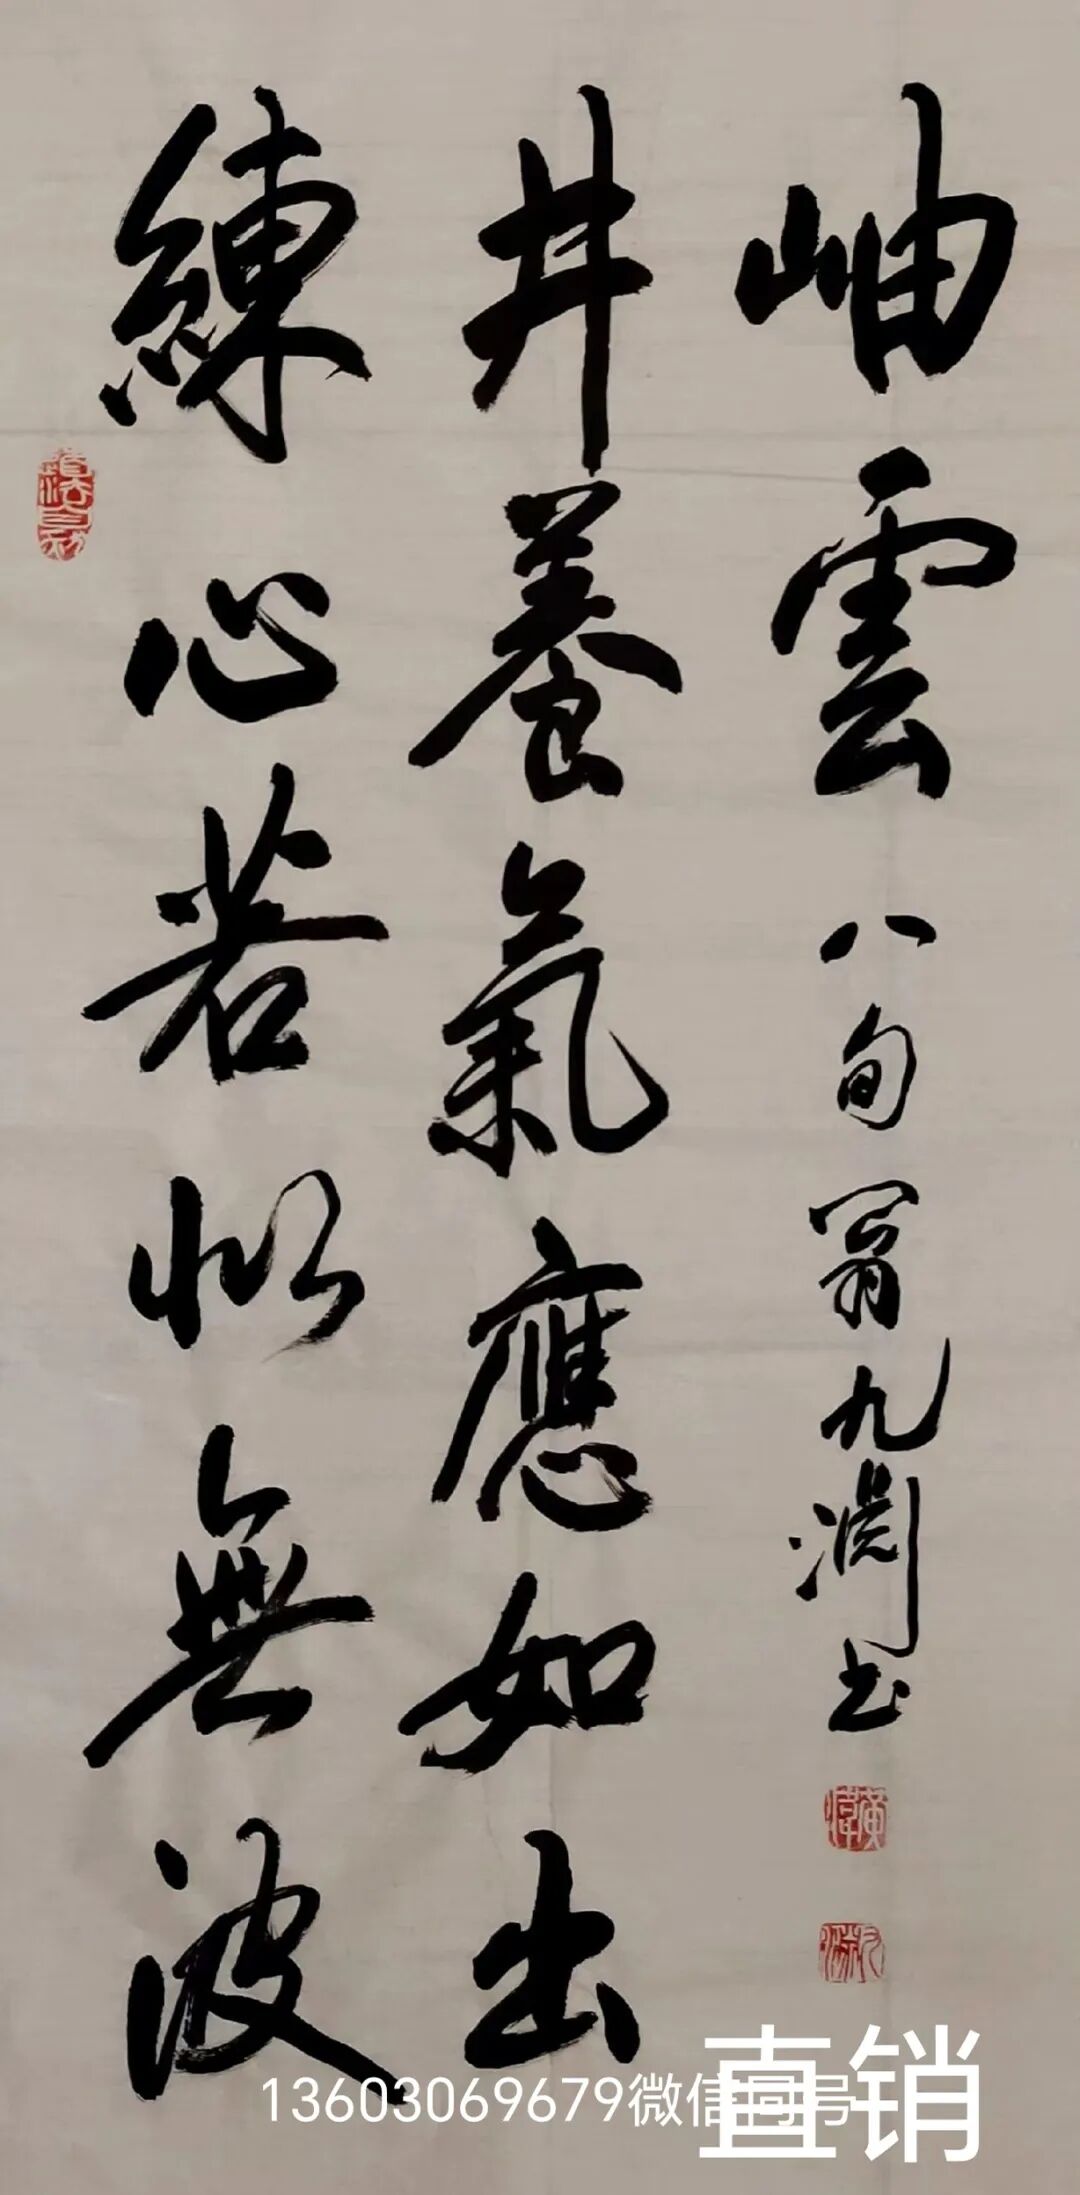 練心若似無波
井養氣應如出
岫雲
八旬翁九淵书
道法自然
九淵
13603069679微信同号
直销